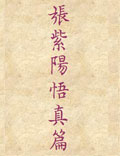 張紫陽悟真篇